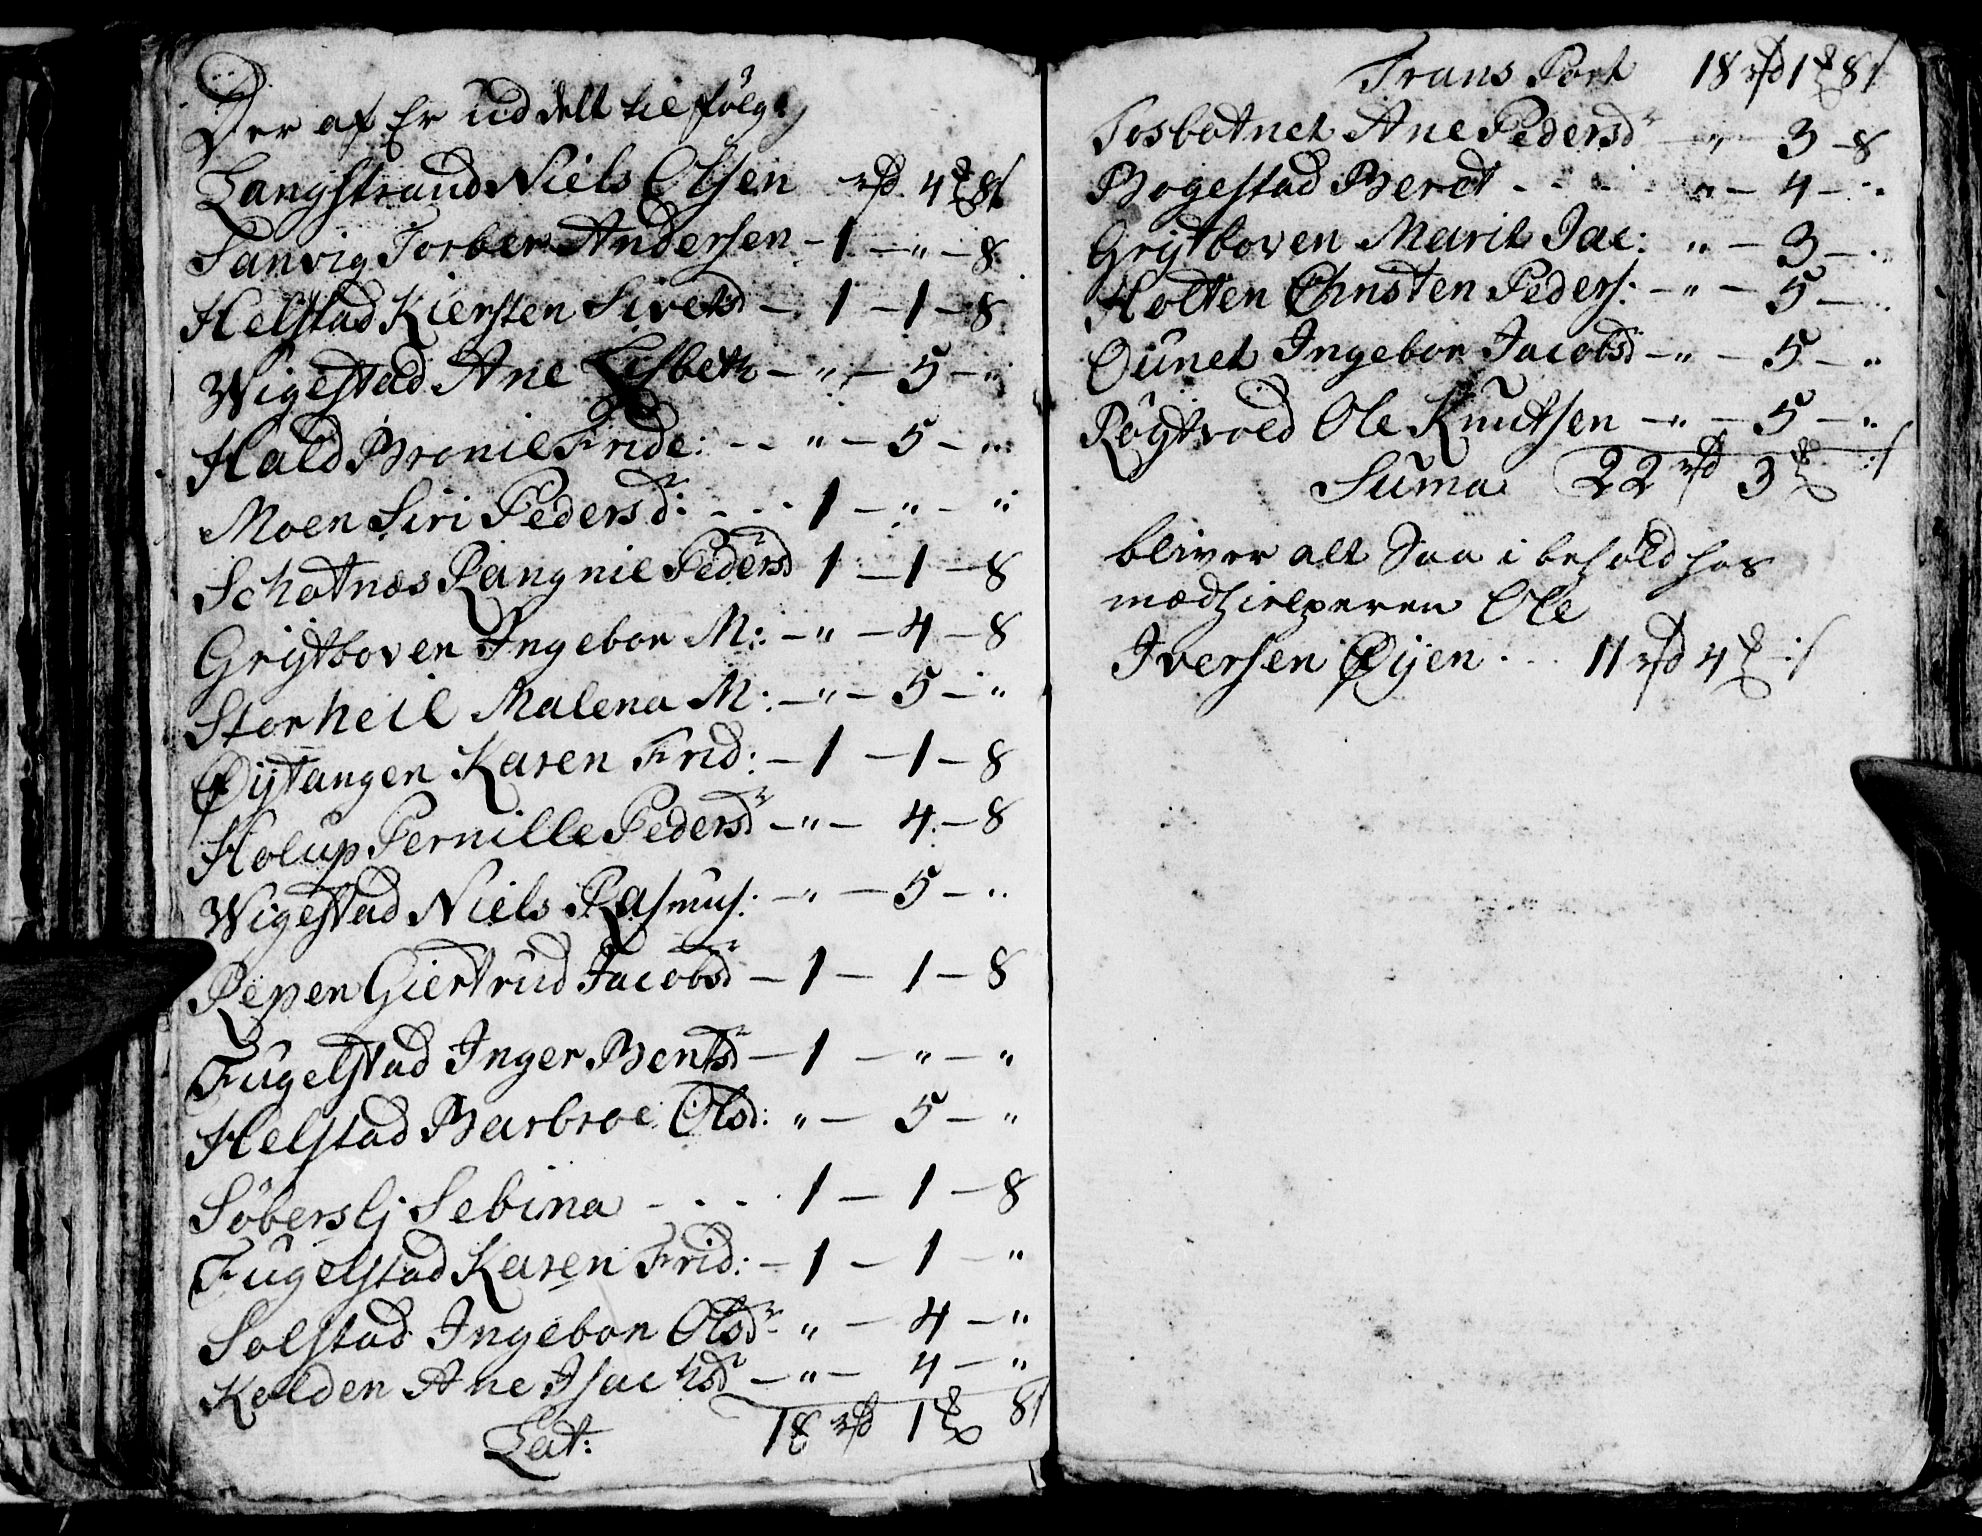 Der af Er uddelt til følg:
Langstrand Niels Olsen rd 4 8 s
Sanvig Torber Andersen - 1 - " - 8
Helstad Kiersten Sivertsd - 1 - 1 - 8
Wigestad Ane Lisbeth - " - 5 - "
Hald Bronil Fride: - - " - 5 - "
Moen Siri Pedersd: - - - 1 - " - "
Schotnæs Rangnil Pedersd 1 - 1 - 8
Grijtboven Ingebor M: - " - 4 - 8
Storheil Malena M: - " - 5 - "
Øijtangen Karen Frid: - 1 - 1 - 8
Holup Pernille Pedersdr - " - 4 - 8
Wigestad Niels Rasmus: - " - 5 - "
Repen Giertrud Jacobsdr - 1 - 1 - 8
Fugelstad Inger Bentsdr - 1 - " - "
Helstad Barbroe Olsd: " - 5 - "
Söberslj Sebina - - - 1 - 1 - 8
Fugelstad Karen Frid: - 1 - 1 - "
Solstad Ingebor Olsdr - " - 4 - "
Kolden Ane Isachsdr - " - 4 - "
Lat: 18 rd 1 8 s
Trans Port 18 rd 1 8 s
Tosbotnet Ane Pedersdr - " - 3 - 8
Bogestad Beret - - - " - 4 - "
Grijtboven Marit Jac: " - 3 - "
Holten Christen Peders: - " - 5 - "
Ounet Ingebor Jacobsd - " - 5 - "
Røgtvold Ole Knutsen - " - 5 - "
Suma 22 rd 3 :s
bliver alt Saa i behold hos
medhielperen Ole
Iversen Øijen - - - 11 rd 4 - :s